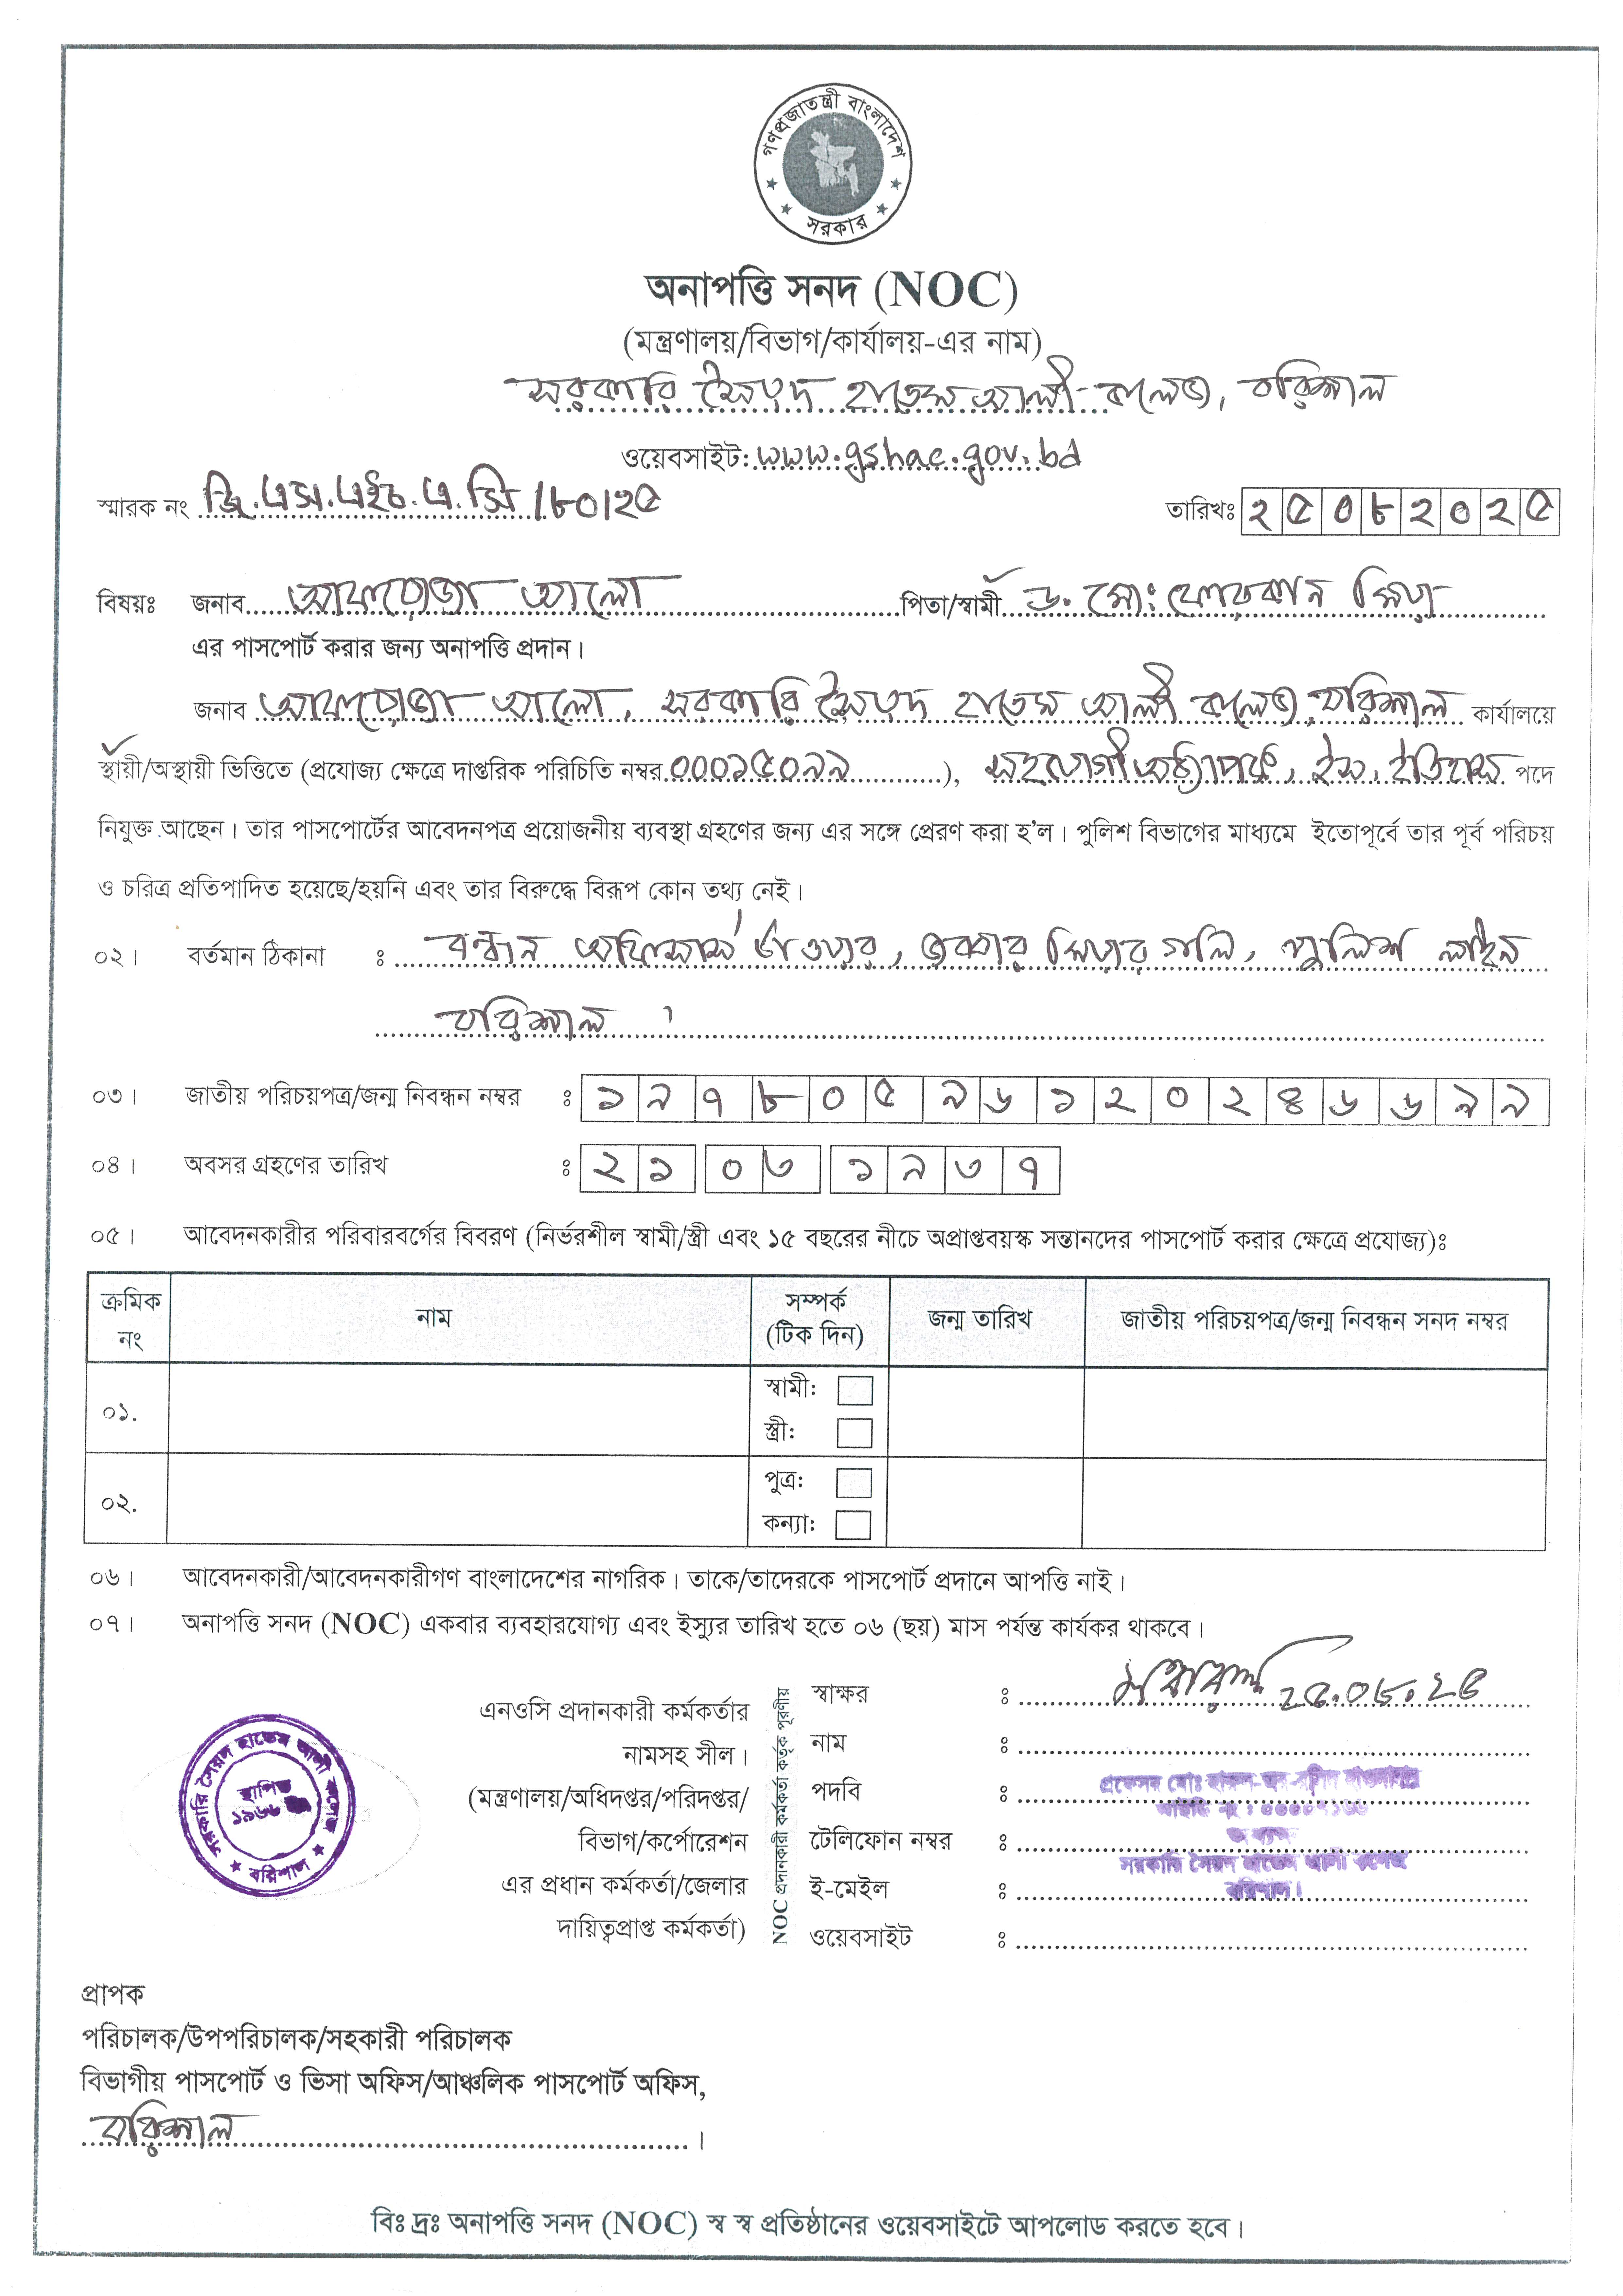 গণপ্রজাতন্ত্রী বাংলাদেশ
সরকার
অনাপত্তি সনদ (NOC)
(মন্ত্রণালয়/বিভাগ/কার্যালয়-এর নাম)
সরকারি সৈয়দ হাতেম আলী কলেজ, বরিশাল
ওয়েবসাইট: www.gshac.gov.bd
স্মারক নং জি.এস.এইচ.এ.সি/৮০/২৫ তারিখঃ ২৫০৮২০২৫
বিষয়ঃ জনাব আফরোজা আলো পিতা/স্বামী ড. মো: ফোরকান মিয়া
এর পাসপোর্ট করার জন্য অনাপত্তি প্রদান।
জনাব আফরোজা আলো, সরকারি সৈয়দ হাতেম আলী কলেজ, বরিশাল কার্যালয়ে
স্থায়ী/অস্থায়ী ভিত্তিতে (প্রযোজ্য ক্ষেত্রে দাপ্তরিক পরিচিতি নম্বর ০০০১৫০৯৯), সহযোগী অধ্যাপক, ইস. ইতিহাস পদে
নিযুক্ত আছেন। তার পাসপোর্টের আবেদনপত্র প্রয়োজনীয় ব্যবস্থা গ্রহণের জন্য এর সঙ্গে প্রেরণ করা হ'ল। পুলিশ বিভাগের মাধ্যমে ইতোপূর্বে তার পূর্ব পরিচয়
ও চরিত্র প্রতিপাদিত হয়েছে/হয়নি এবং তার বিরুদ্ধে বিরূপ কোন তথ্য নেই।
০২। বর্তমান ঠিকানা : বন্ধন অফিসার্স টাওয়ার, জব্বার মিয়ার গলি, পুলিশ লাইন
বরিশাল
০৩। জাতীয় পরিচয়পত্র/জন্ম নিবন্ধন নম্বর ঃ ১৯৭৮০৫৯৬১২০২৪৬৬৯৯
০৪। অবসর গ্রহণের তারিখ ঃ ২১ ০৩ ১৯৩৭
০৫। আবেদনকারীর পরিবারবর্গের বিবরণ (নির্ভরশীল স্বামী/স্ত্রী এবং ১৫ বছরের নীচে অপ্রাপ্তবয়স্ক সন্তানদের পাসপোর্ট করার ক্ষেত্রে প্রযোজ্য)ঃ
ক্রমিক নং নাম সম্পর্ক (টিক দিন) জন্ম তারিখ জাতীয় পরিচয়পত্র/জন্ম নিবন্ধন সনদ নম্বর
০১. স্বামী:
স্ত্রী:
০২. পুত্র:
কন্যা:
০৬। আবেদনকারী/আবেদনকারীগণ বাংলাদেশের নাগরিক। তাকে/তাদেরকে পাসপোর্ট প্রদানে আপত্তি নাই।
০৭। অনাপত্তি সনদ (NOC) একবার ব্যবহারযোগ্য এবং ইস্যুর তারিখ হতে ০৬ (ছয়) মাস পর্যন্ত কার্যকর থাকবে।
সরকারি সৈয়দ হাতেম আলী কলেজ
স্থাপিত
১৯৬৬
বরিশাল
এনওসি প্রদানকারী কর্মকর্তার
নামসহ সীল।
(মন্ত্রণালয়/অধিদপ্তর/পরিদপ্তর/
বিভাগ/কর্পোরেশন
এর প্রধান কর্মকর্তা/জেলার
দায়িত্বপ্রাপ্ত কর্মকর্তা)
NOC প্রদানকারী কর্মকর্তা কর্তৃক পূরণীয়
স্বাক্ষর ঃ ২৫.০৮.২৫
নাম ঃ
পদবি ঃ প্রফেসর মোঃ হারুন-অর-রশিদ
টেলিফোন নম্বর ঃ অধ্যক্ষ
সরকারি সৈয়দ হাতেম আলী কলেজ
ই-মেইল ঃ বরিশাল।
ওয়েবসাইট ঃ
প্রাপক
পরিচালক/উপপরিচালক/সহকারী পরিচালক
বিভাগীয় পাসপোর্ট ও ভিসা অফিস/আঞ্চলিক পাসপোর্ট অফিস,
বরিশাল।
বিঃ দ্রঃ অনাপত্তি সনদ (NOC) স্ব স্ব প্রতিষ্ঠানের ওয়েবসাইটে আপলোড করতে হবে।